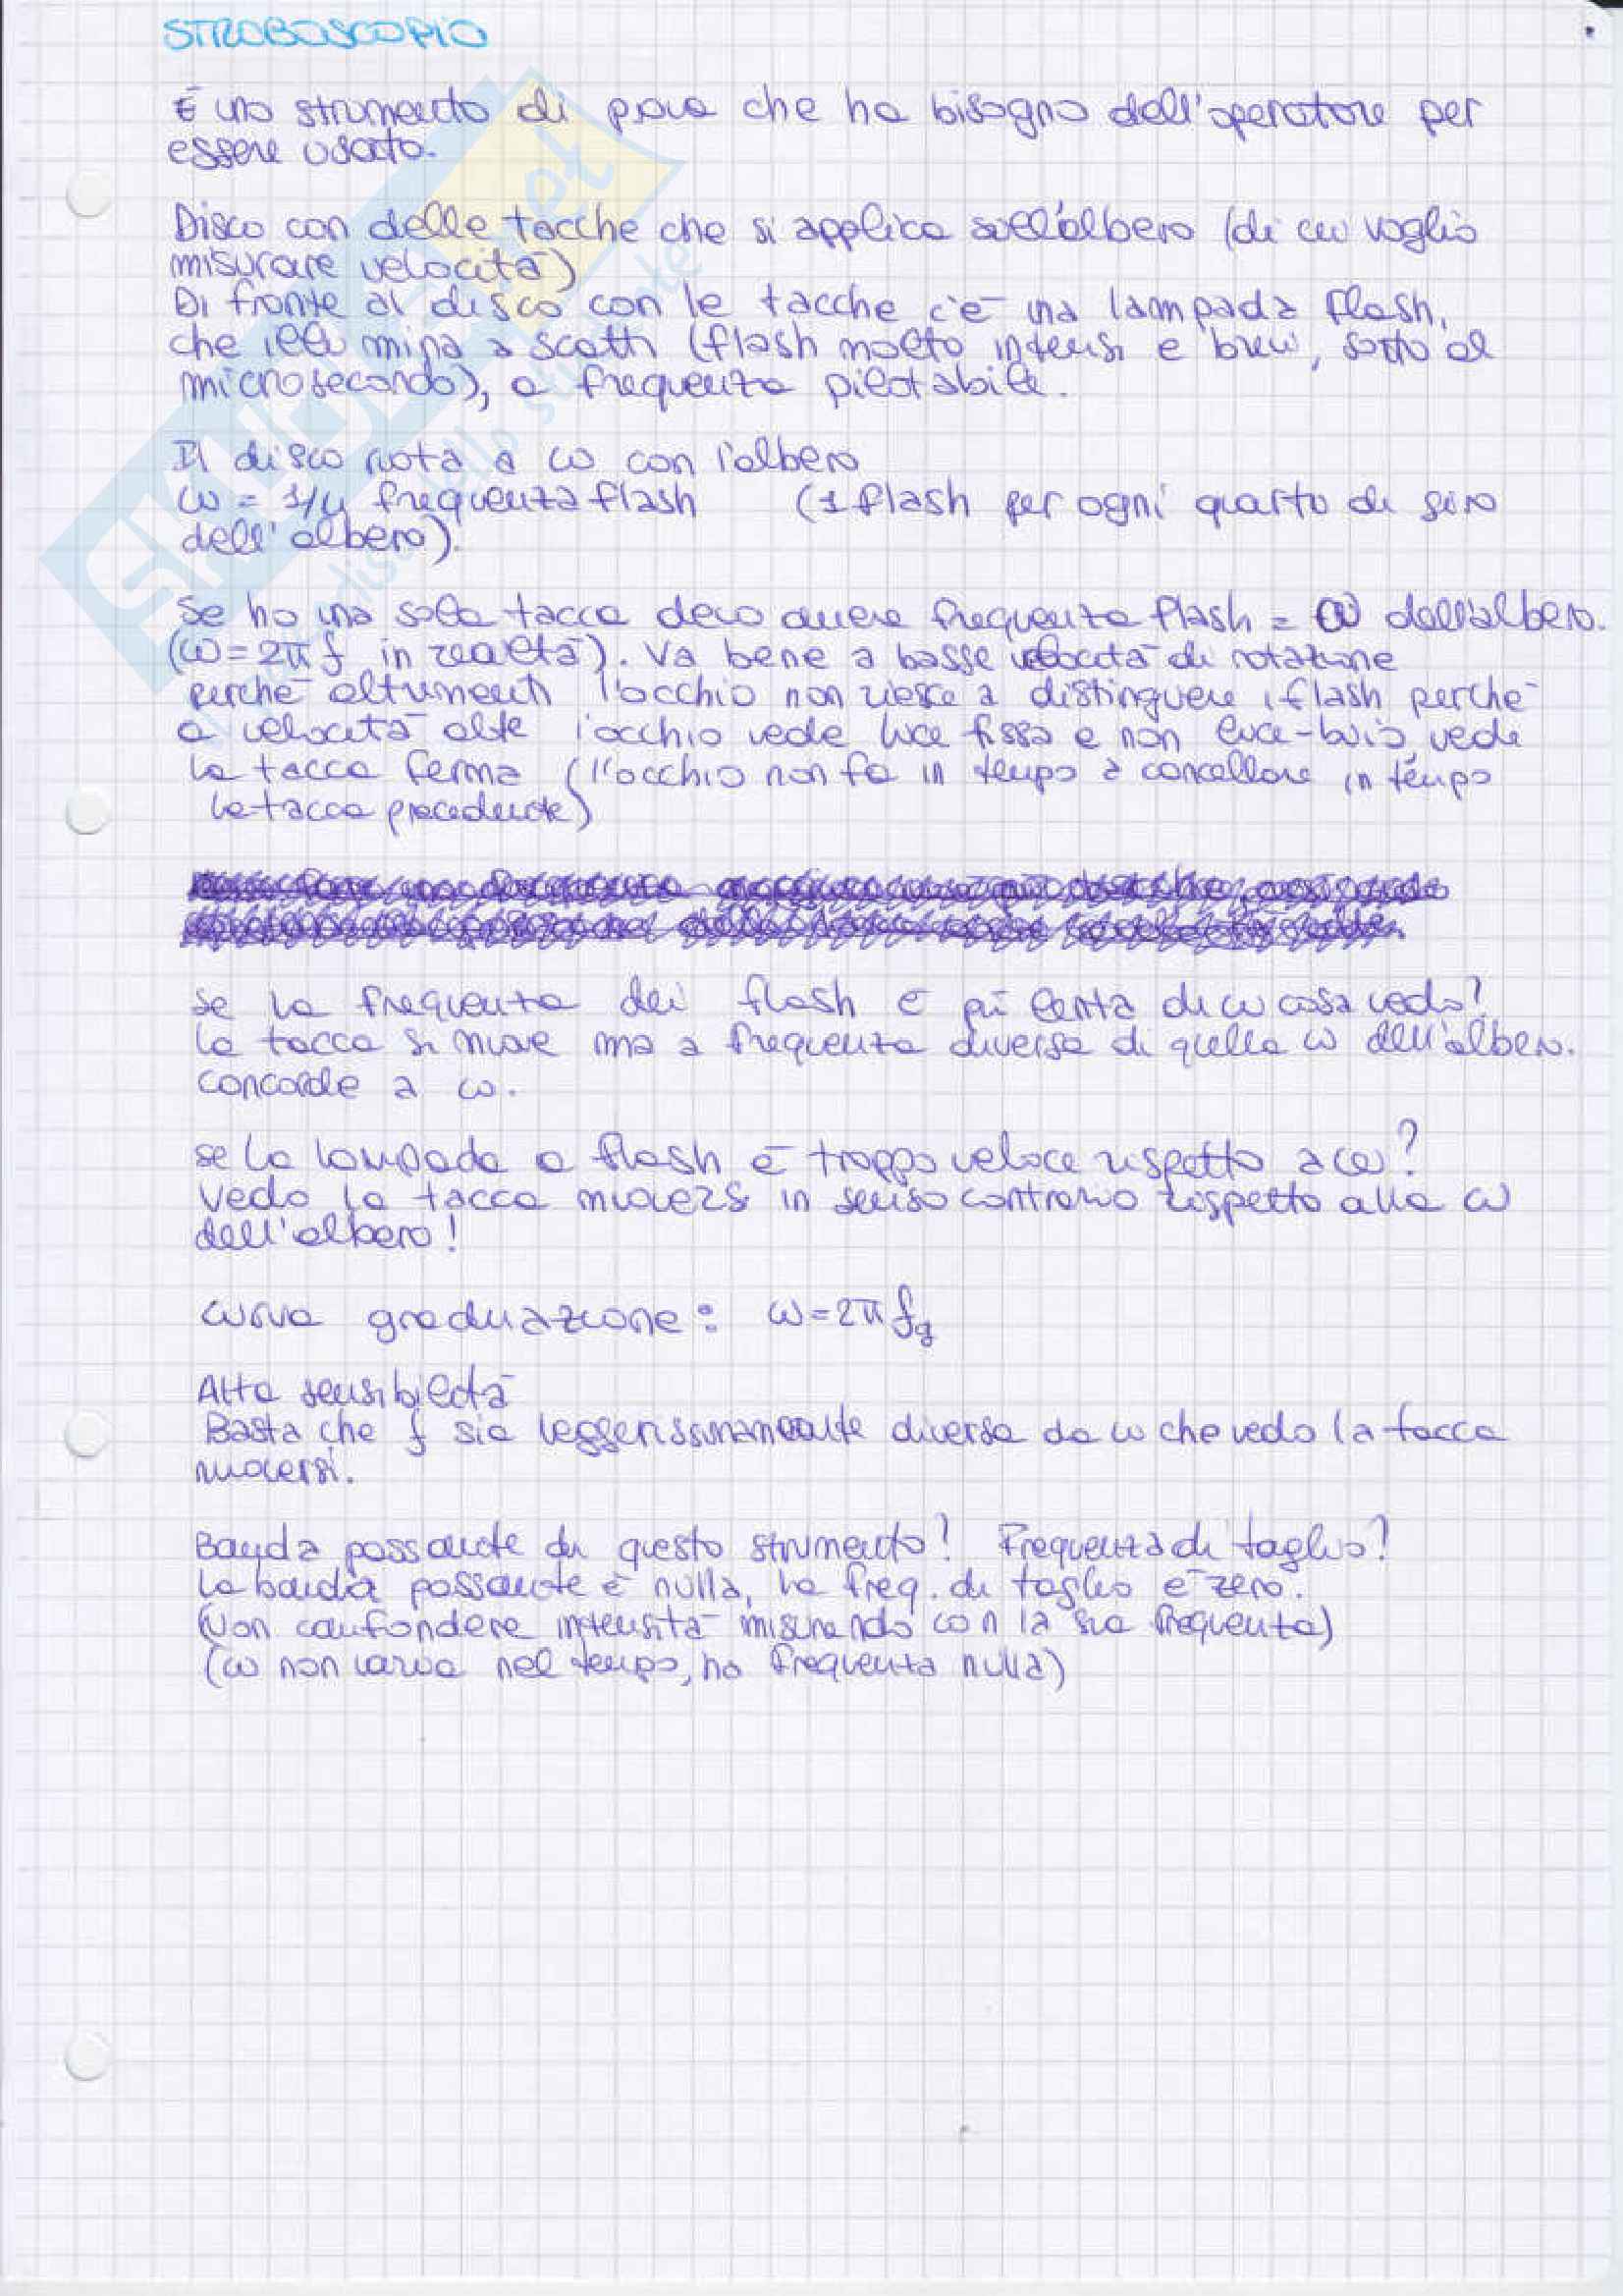 STROBOSCOPIO
È uno strumento di prova che ha bisogno dell'operatore per
essere usato.
Disco con delle tacche che si applica sull'albero (di cui voglio
misurare velocità)
Di fronte al disco con le tacche c'è una lampada flash,
che illumina a scatti (flash molto intensi e brevi, sotto al
microsecondo), a frequenza pilotabile.
Il disco ruota a ω con l'albero
ω = 1/4 frequenza flash (1 flash per ogni quarto di giro
dell'albero).
Se ho una sola tacca devo avere frequenza flash = ω dell'albero.
(ω = 2π f in realtà). Va bene a basse velocità di rotazione
perché altrimenti l'occhio non riesce a distinguere i flash perché
a velocità alte l'occhio vede luce fissa e non luce-buio, vede
la tacca ferma (l'occhio non fa in tempo a cancellare in tempo
la tacca precedente)
Se la frequenza dei flash è più lenta di ω cosa vedo?
La tacca si muove ma a frequenza diversa di quella ω dell'albero.
concorde a ω.
Se la lampada a flash è troppo veloce rispetto a ω?
Vedo la tacca muoversi in senso contrario rispetto alla ω
dell'albero!
curva graduazione: ω = 2π fg
Alta sensibilità
Basta che f sia leggerissimamente diversa da ω che vedo la tacca
muoversi.
Banda passante di questo strumento? Frequenza di taglio?
La banda passante è nulla, la freq. di taglio è zero.
(Non confondere intensità misurando con la sua frequenza)
(ω non varia nel tempo, ha frequenza nulla)
SKUOLA.net